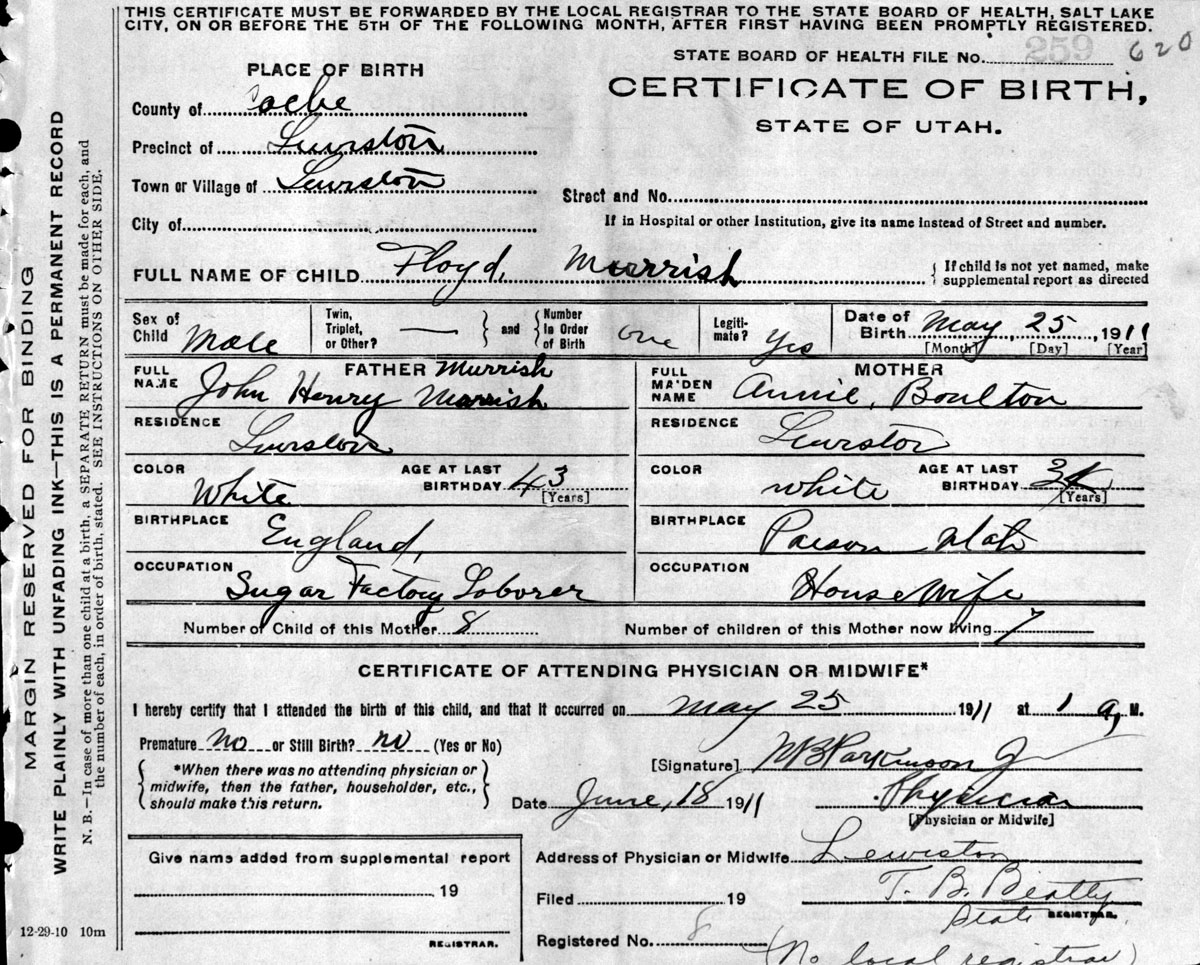 THIS CERTIFICATE MUST BE FORWARDED BY THE LOCAL REGISTRAR TO THE STATE BOARD OF HEALTH, SALT LAKE
CITY, ON OR BEFORE THE 5TH OF THE FOLLOWING MONTH, AFTER FIRST HAVING BEEN PROMPTLY REGISTERED.
STATE BOARD OF HEALTH FILE No. 259 620
PLACE OF BIRTH
CERTIFICATE OF BIRTH,
STATE OF UTAH.
County of Cache
Precinct of Lewiston
Town or Village of Lewiston
Street and No.
City of
If in Hospital or other Institution, give its name instead of Street and number.
FULL NAME OF CHILD Floyd, Murrish
{ If child is not yet named, make
supplemental report as directed
Sex of Child Male
Twin, Triplet, or Other? — } and { Number In Order of Birth one
Legiti-mate? Yes
Date of Birth May 25, 1911
[Month] [Day] [Year]
FATHER
FULL NAME John Henry Murrish Murrish
RESIDENCE Lewiston
COLOR White
AGE AT LAST BIRTHDAY 43 [Years]
BIRTHPLACE England,
OCCUPATION Sugar Factory Laborer
MOTHER
FULL MAIDEN NAME Annie, Boulton
RESIDENCE Lewiston
COLOR White
AGE AT LAST BIRTHDAY [Years]
BIRTHPLACE Paeson Utah
OCCUPATION House Wife
Number of Child of this Mother 8
Number of children of this Mother now living 7
CERTIFICATE OF ATTENDING PHYSICIAN OR MIDWIFE*
I hereby certify that I attended the birth of this child, and that it occurred on May 25 1911 at 1 a, M.
Premature no or Still Birth? no (Yes or No)
{ *When there was no attending physician or
midwife, then the father, householder, etc.,
should make this return. }
[Signature] WB Parkinson Jr
Date June, 18 1911 Physician
[Physician or Midwife]
Give name added from supplemental report
19
REGISTRAR.
Address of Physician or Midwife Lewiston
Filed 19 T. B. Beatty
State REGISTRAR.
Registered No. 8
(No local registrar)
12-29-10 10m
MARGIN RESERVED FOR BINDING
WRITE PLAINLY WITH UNFADING INK—THIS IS A PERMANENT RECORD
N. B.—In case of more than one child at a birth, a SEPARATE RETURN must be made for each, and
the number of each, in order of birth, stated. SEE INSTRUCTIONS ON OTHER SIDE.